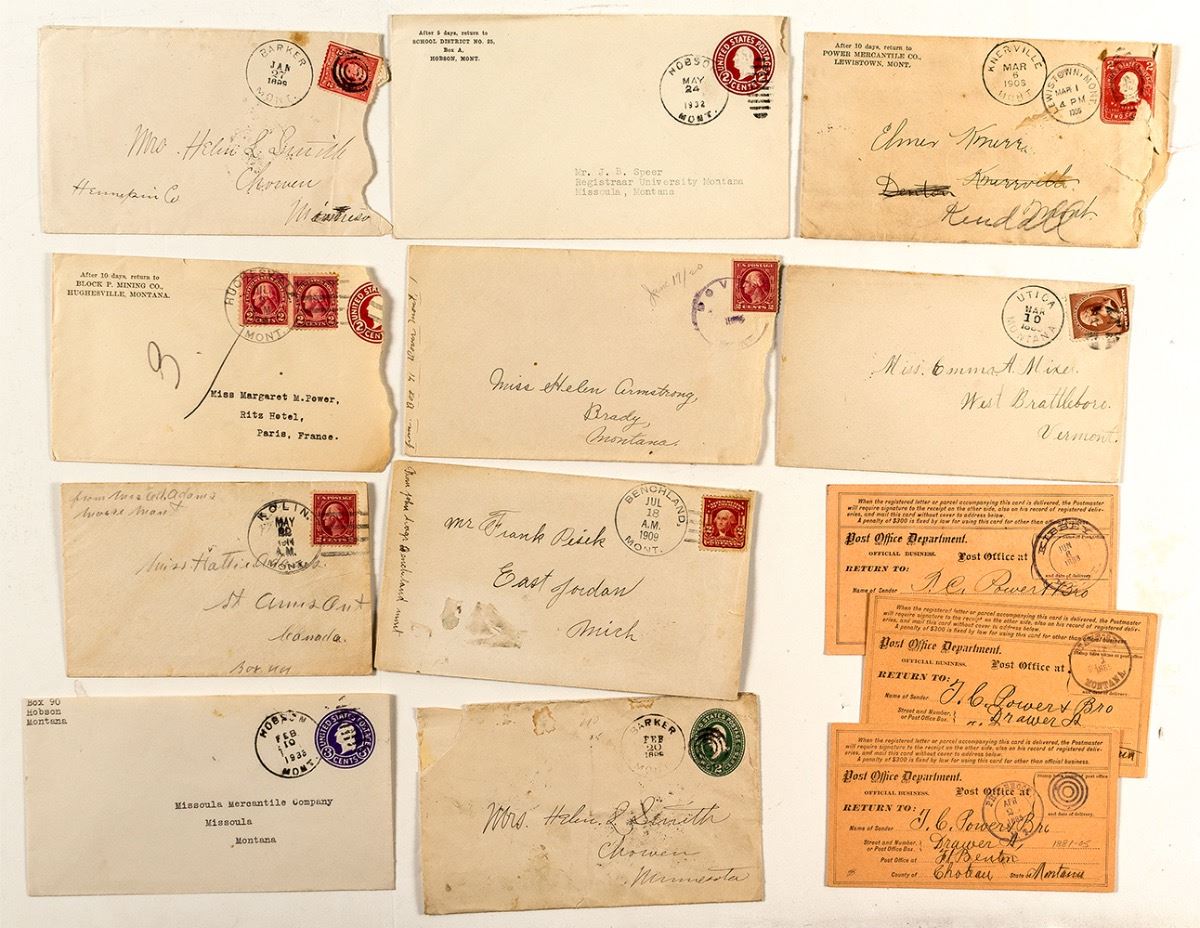 BARKER
JAN
27
MONT.
Mrs Helen L Smith
Chowen
Hennepin Co
After 5 days, return to
SCHOOL DISTRICT NO. 25,
Box A,
HOBSON, MONT.
HOBSON
MAY
24
1932
MONT.
UNITED STATES POSTAGE
2 CENTS
Mr. J. B. Speer
Registraar University Montana
Missoula, Montana
After 10 days, return to
POWER MERCANTILE CO.,
LEWISTOWN, MONT.
KNERVILLE
MAR
6
MONT.
LEWISTOWN, MONT.
MAR 1
4 PM
Elmer Knerr
Denton Knerrville
Kendall Mont.
After 10 days, return to
BLOCK P. MINING CO.,
HUGHESVILLE, MONTANA.
HUGHESVILLE
MONT.
2 CENTS 2
2 CENTS 2
UNITED STATES
2 CENTS
Miss Margaret M. Power,
Ritz Hotel,
Paris, France.
June 17/20
U.S. POSTAGE
2 CENTS 2
Miss Helen Armstrong,
Brady,
Montana.
UTICA
MAR
10
MONTANA
Miss. Emma A. Mixer.
West Brattleboro.
Vermont.
from Mrs Ed. Adams
Moore Mont
KOLIN,
MAY
MONT.
A.M.
U.S. POSTAGE
Miss Hattie
St Anns Ont
Canada.
Box
Benchland mont
BENCHLAND,
JUL
18
A.M.
1909
MONT.
Mr Frank Pesek
East Jordan
Mich
When the registered letter or parcel accompanying this card is delivered, the Postmaster
will require signature to the receipt on the other side, also on his record of registered deliv-
eries, and mail this card without cover to address below.
A penalty of $300 is fixed by law for using this card for other than official business.
Post Office Department.
OFFICIAL BUSINESS.
Post Office at
RETURN TO:
and date of delivery.
JUN
Name of Sender T. C. Powers & Bro
When the registered letter or parcel accompanying this card is delivered, the Postmaster
will require signature to the receipt on the other side, also on his record of registered deliv-
eries, and mail this card without cover to address below.
A penalty of $300 is fixed by law for using this card for other than official business.
Post Office Department.
OFFICIAL BUSINESS.
Post Office at
RETURN TO:
and date of delivery.
MONTANA.
Name of Sender T. C. Powers & Bro
Street and Number,
or Post Office Box. Drawer A
Box 90
Hobson
Montana
HOBSON
FEB
10
1933
MONT.
UNITED STATES POSTAGE
3 CENTS 3
Missoula Mercantile Company
Missoula
Montana
BARKER
FEB
20
MONT
UNITED STATES POSTAGE
2 CENTS
Mrs. Helen. L Smith
Chowen
Minnesota
When the registered letter or parcel accompanying this card is delivered, the Postmaster
will require signature to the receipt on the other side, also on his record of registered deliv-
eries, and mail this card without cover to address below.
A penalty of $300 is fixed by law for using this card for other than official business.
Post Office Department.
OFFICIAL BUSINESS.
Post Office at
Stamp here name of post office
and date of delivery.
APR
RETURN TO:
Name of Sender T. C. Powers & Bro
Street and Number,
or Post Office Box. Drawer A, 1881-05
Post Office at Ft Benton
County of Choteau State of Montana